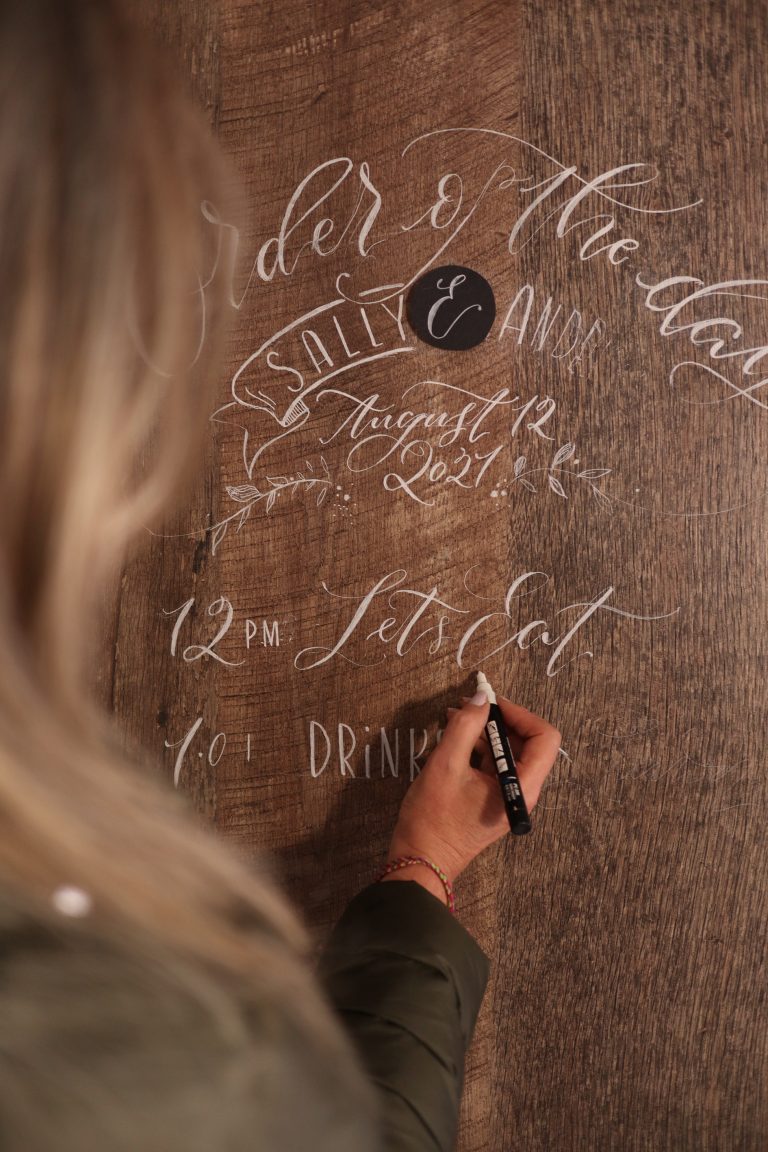 Order of the day
SALLY & ANDE
August 12
2021
12 PM Let's Eat
DRINKS